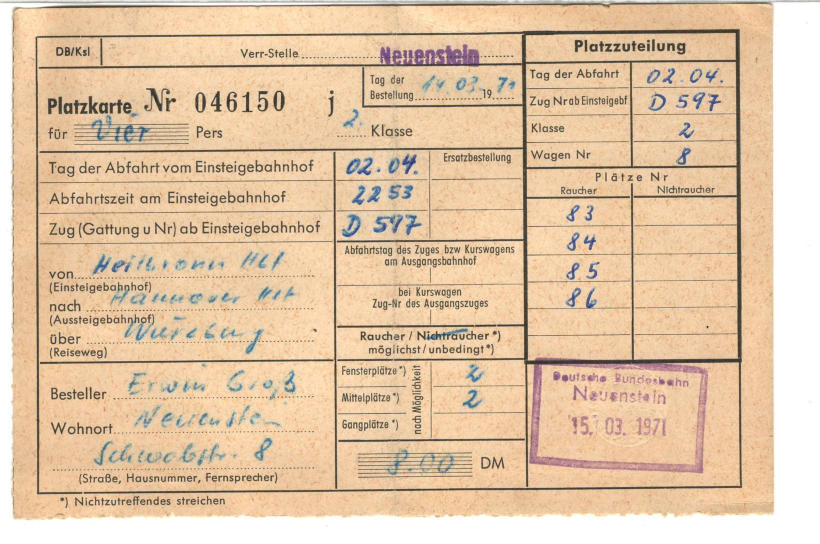 DB/Ksl
Verr-Stelle Neuenstein
Platzkarte Nr 046150 j
Tag der Bestellung 14.03. 19 71
für Vier Pers 2. Klasse
Tag der Abfahrt vom Einsteigebahnhof 02.04. Ersatzbestellung
Abfahrtszeit am Einsteigebahnhof 22 53
Zug (Gattung u Nr) ab Einsteigebahnhof D 597
von Heilbronn Hbf
(Einsteigebahnhof)
nach Hannover Hbf
(Aussteigebahnhof)
über Würzburg
(Reiseweg)
Abfahrtstag des Zuges bzw Kurswagens
am Ausgangsbahnhof
bei Kurswagen
Zug-Nr des Ausgangszuges
Raucher / Nichtraucher*)
möglichst/unbedingt*)
Besteller Erwin Groß
Wohnort Neuenstein
Schwabstr. 8
(Straße, Hausnummer, Fernsprecher)
Fensterplätze*) 2
Mittelplätze*) 2
Gangplätze*)
nach Möglichkeit
8.00 DM
*) Nichtzutreffendes streichen
Platzzuteilung
Tag der Abfahrt 02.04.
Zug Nr ab Einsteigebf D 597
Klasse 2
Wagen Nr 8
Plätze Nr
Raucher Nichtraucher
83
84
85
86
Deutsche Bundesbahn
Neuenstein
15. 03. 1971